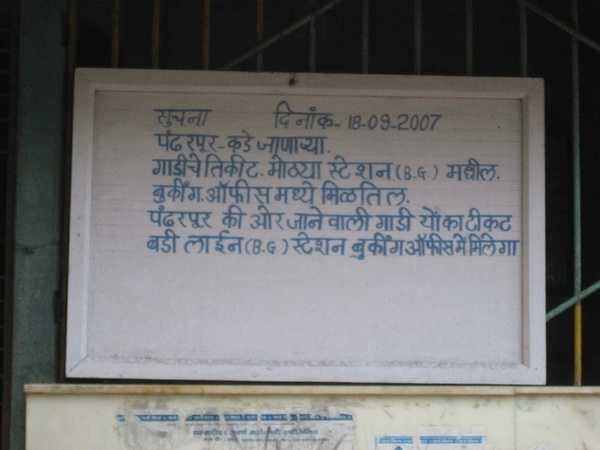 सुचना दिनांक- 18-09-2007
पंढरपूर-कडे जाणाऱ्या.
गाडीचे तिकीट. मोठया स्टेशन (B.G.) मधील.
बुकींग. ऑफीस मध्ये मिळतिल.
पंढरपूर की ओर जाने वाली गाडी योंका टीकट
बडी लाईन (B.G) स्टेशन बुकींग ऑफीस में मिलेगा